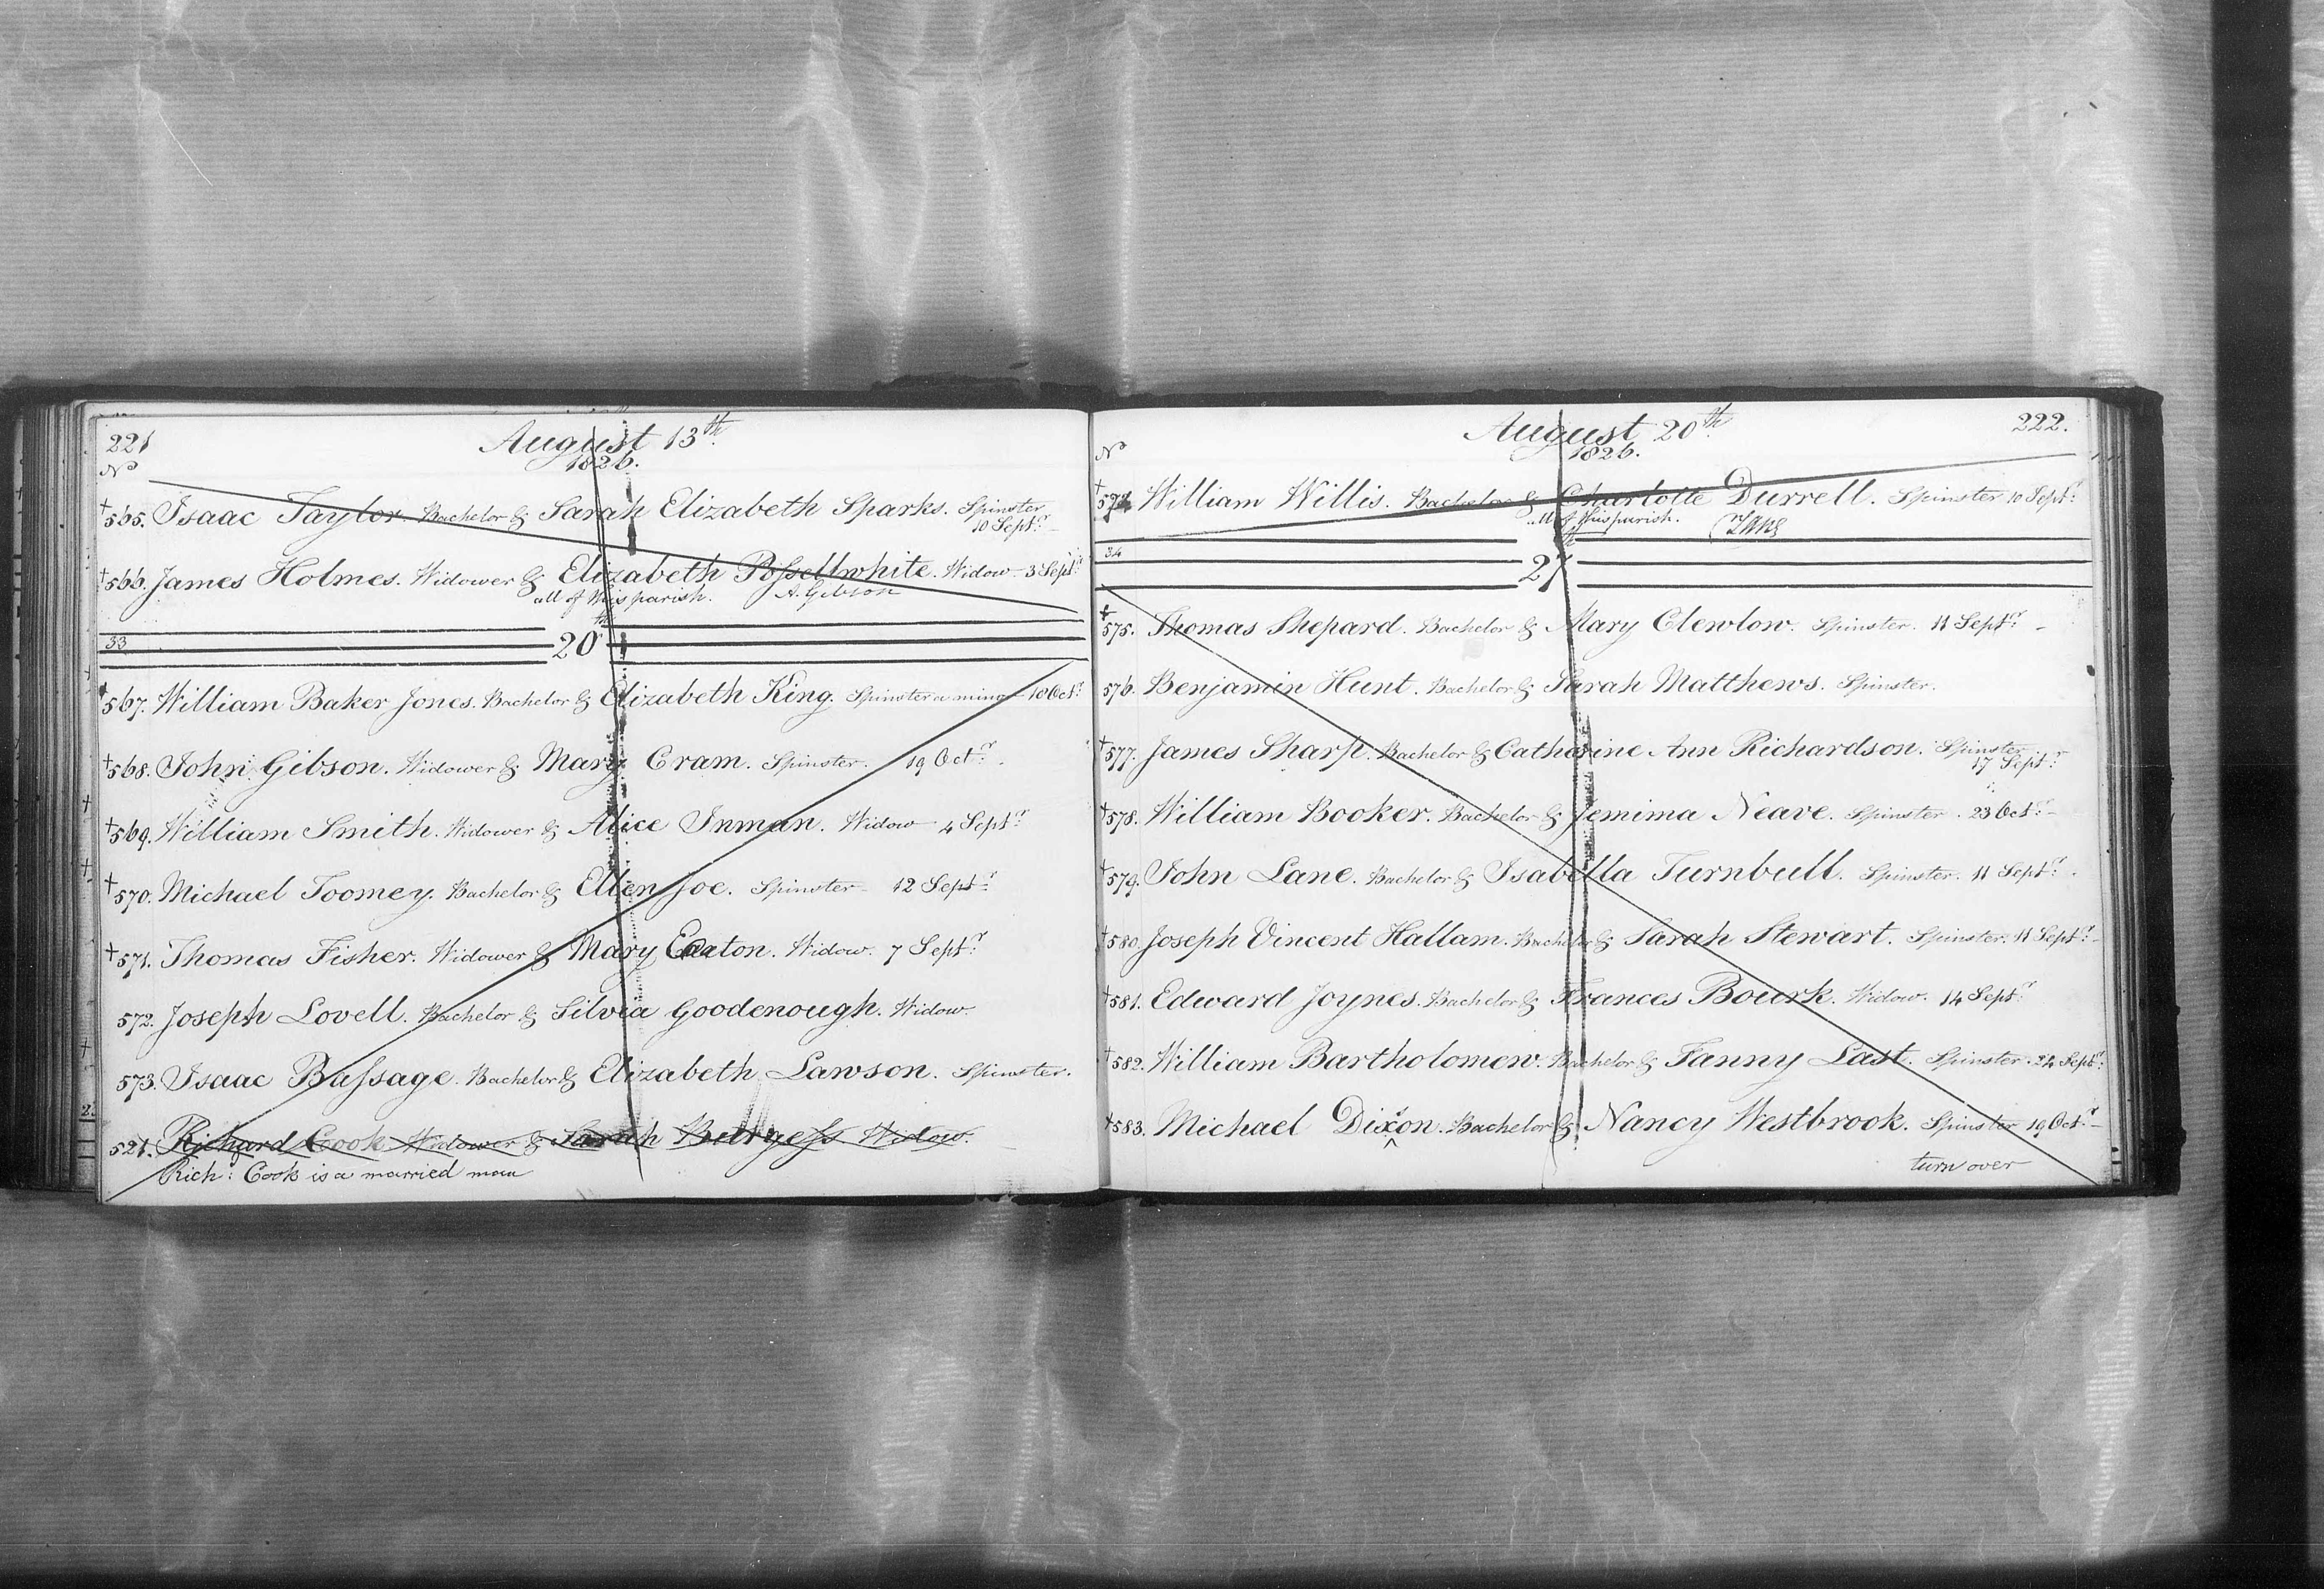 221
August 13th
1826.
No
†565. Isaac Taylor Bachelor & Sarah Elizabeth Sparks. Spinster
10 Septr
†566. James Holmes. Widower & Elizabeth Posseltwhite. Widow – 3 Septr
all of this parish. A. Gibson
33
20th
567. William Baker Jones. Bachelor & Elizabeth King. Spinster a minor – 18 Octr
†568. John Gibson. Widower & Mary Cram. Spinster. 19 Octr
†569. William Smith. Widower & Alice Inman. Widow – 4 Septr
†570. Michael Toomey. Bachelor & Ellen Joe. Spinster – 12 Septr
†571. Thomas Fisher. Widower & Mary Eaton. Widow. 7 Septr
572. Joseph Lovell. Bachelor & Silvia Goodenough. Widow.
573. Isaac Bassage. Bachelor & Elizabeth Lawson. Spinster.
521. Richard Cook Widower & Sarah Burgess Widow.
Rich: Cook is a married man
222.
August 20th
1826.
No
†574 William Willis. Bachelor & Charlotte Durrell. Spinster 10 Septr
all of this parish.
34
27th
†575. Thomas Shepard. Bachelor & Mary Clewlow. Spinster. 11 Septr –
576. Benjamin Hunt. Bachelor & Sarah Matthews. Spinster.
†577. James Sharp. Bachelor & Catharine Ann Richardson. Spinster
17 Septr
†578. William Booker. Bachelor & Jemima Neave. Spinster. 23 Octr –
†579. John Lane. Bachelor & Isabella Turnbull. Spinster. 11 Septr.
†580. Joseph Vincent Hallam. Bachelor & Sarah Stewart. Spinster. 11 Septr –
†581. Edward Joynes. Bachelor & Frances Bourk. Widow. 14 Septr
†582. William Bartholomew. Bachelor & Fanny Last. Spinster. 24 Septr
†583. Michael Dixon. Bachelor & Nancy Westbrook. Spinster 19 Octr –
turn over